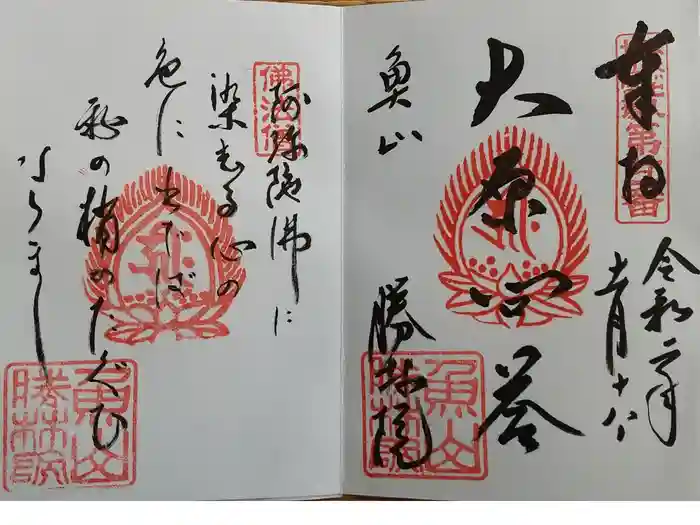 奉拝
令和二年
十一月十八
大原問答
魚山
勝林院
魚山
勝林院
佛法僧
阿弥陀佛に
染むる心の
色に出でば
秋の梢の
たぐひ
ならまし
魚山
勝林院